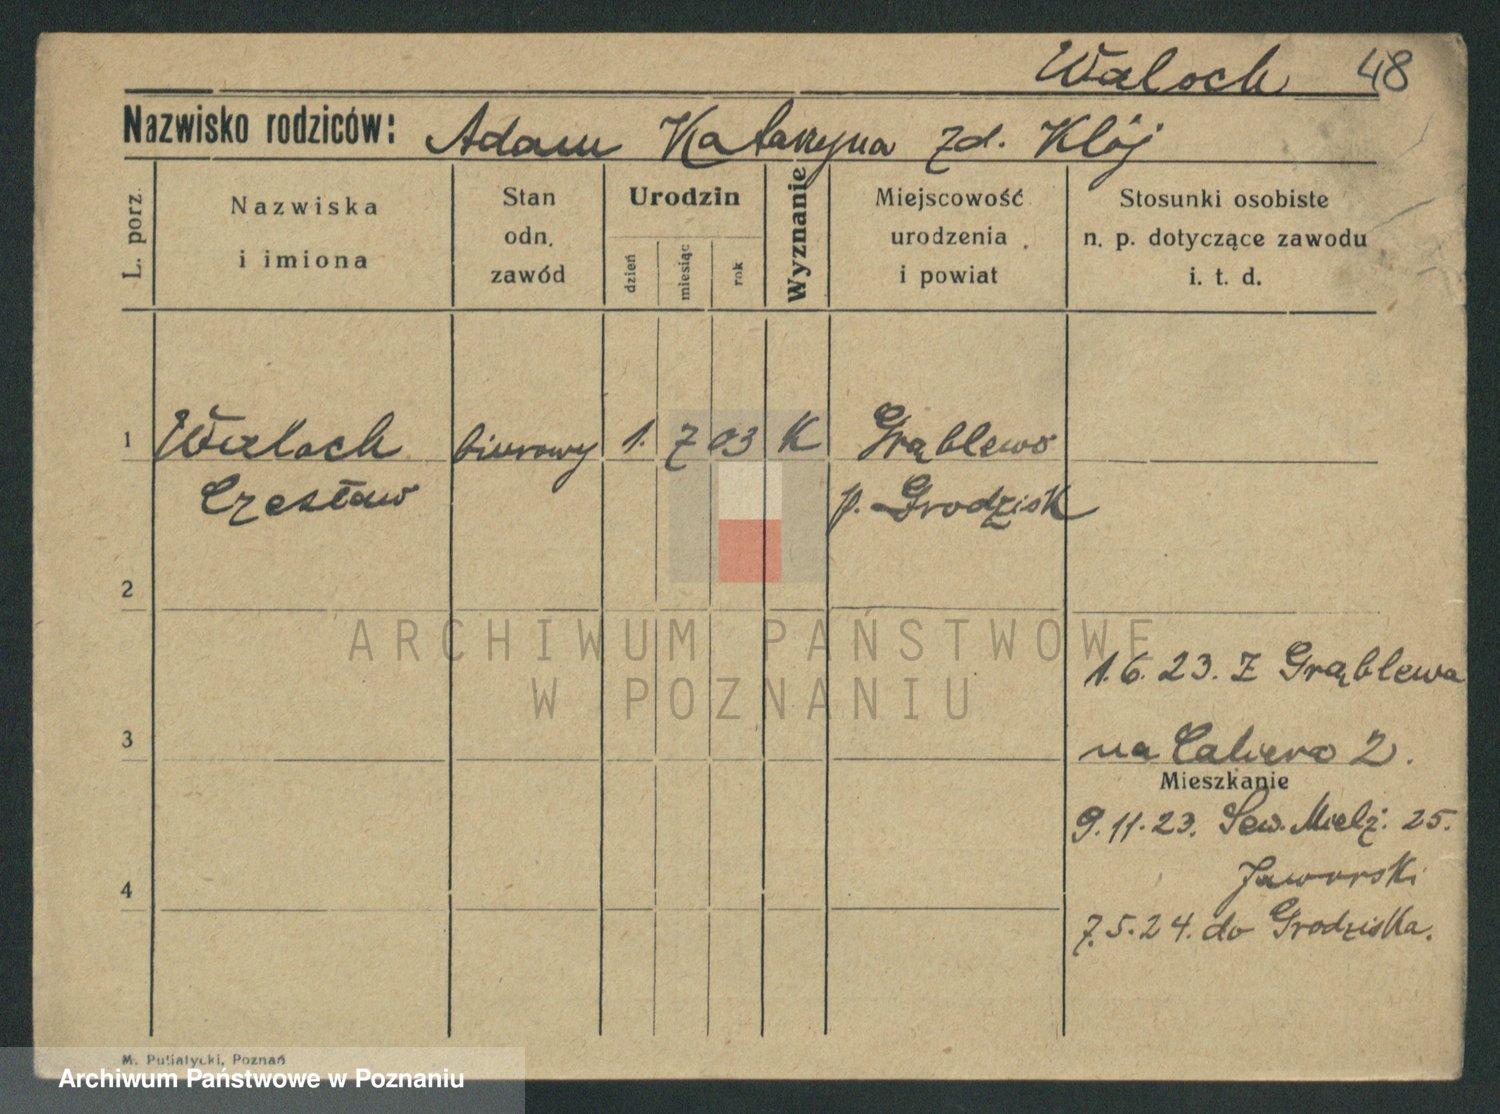 Waloch 48
Nazwisko rodziców: Adam Katarzyna zd. Klój
L. porz.
Nazwiska
i imiona
Stan
odn.
zawód
Urodzin
dzień
miesiąc
rok
Wyznanie
Miejscowość
urodzenia
i powiat
Stosunki osobiste
n. p. dotyczące zawodu
i. t. d.
1 Waloch biurowy 1. 7 03 K Grąblewo
Czesław p. Grodzisk
2
ARCHIWUM PAŃSTWOWE
W POZNANIU
1.6.23. Z Grąblewa
3 na 2.
Mieszkanie
9.11.23. Sew. Mielż. 25.
Jaworski
4
7.5.24. do Grodziska.
M. Putiatycki, Poznań
Archiwum Państwowe w Poznaniu